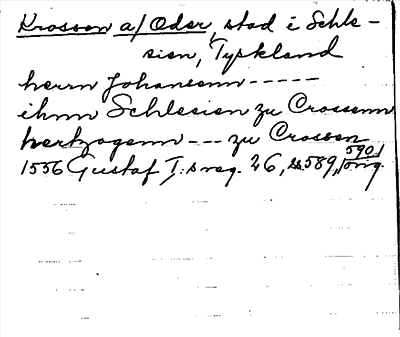 Krossen a/Oder, stad i Schle-
sien, Tyskland
herrn Johansenn -----
ihnn Schlesien zu Crossenn
hertzogenn --- zu Crossen
1556 Gustaf I:s reg. 26, ss. 589, 590/orig.